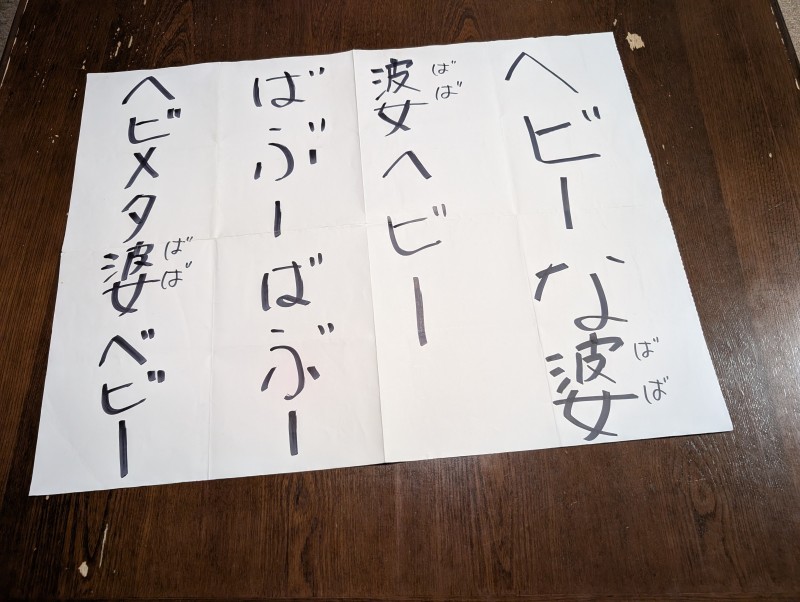 ヘビーな婆
ばば
婆ヘビー
ばば
ばぶーばぶー
ヘビメタ婆ベビー
ばば